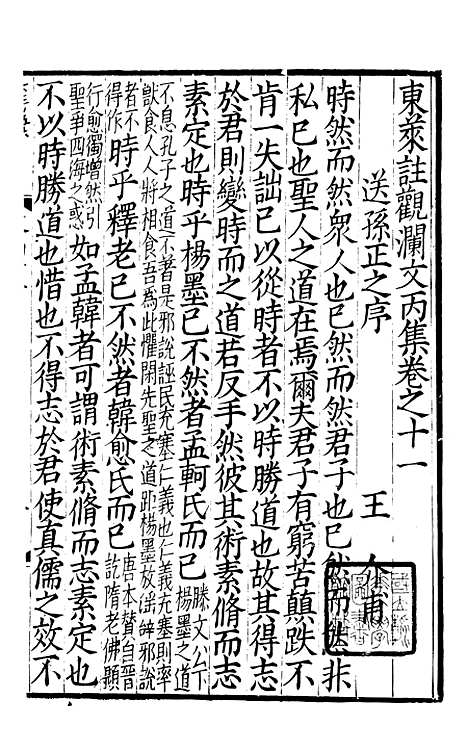 東萊註觀瀾文丙集卷之十一
送孫正之序
王介甫
時然而然衆人也已然而然君子也已然而然非
私已也聖人之道在焉爾夫君子有窮苦顛跌不
肯一失詘已以從時者不以時勝道也故其得志
於君則變時而之道若反手然彼其術素脩而志
素定也時乎楊墨已不然者孟軻氏而已滕文公下楊墨之道
不息孔子之道不著是邪說誣民充塞仁義也仁義充塞則率
獸食人人將相食吾爲此懼閑先聖之道距楊墨放淫辭邪說
者不得作時乎釋老已不然者韓愈氏而已唐本賛自晉訖隋老佛顯
行愈獨喟然引聖爭四海之惑如孟韓者可謂術素脩而志素定也
不以時勝道也惜也不得志於君使真儒之效不